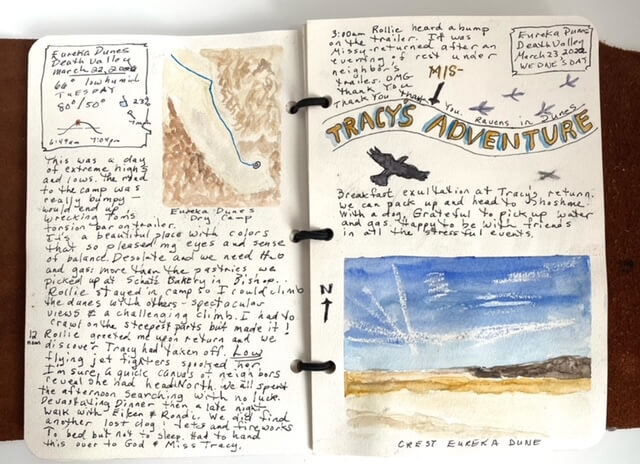 Eureka Dunes
Death Valley
March 22, 2022
66° low humid
TUESDAY
80°/50°
23%
6:49am 7:04pm
This was a day
of extreme highs
and lows. The road
to the camp was
really bumpy –
would end up
wrecking Tom's
torsion bar on trailer.
It's a beautiful place with colors
that so pleased my eyes and sense
of balance. Desolate and we need H2O
and gas: more than the pastries we
picked up at Schatz Bakery in Bishop.
Rollie stayed in camp so I could climb
the dunes with others – spectacular
views & a challenging climb. I had to
crawl on the steepest parts but made it!
12 noon
Rollie greeted me upon return and we
discover Tracy had taken off. Low
flying jet fighters spooked her
I'm sure. A quick canvas of neighbors
reveal she had head North. We all spent
the afternoon searching with no luck.
Devastating Dinner then a late night
walk with Eiken & Rondi. We did find
another lost dog! Jets and fireworks
To bed but not to sleep. Had to hand
this over to God & Miss Tracy.
Eureka Dunes
Dry Camp
3:00am Rollie heard a bump
on the trailer. It was
Missy-returned after an
evening of rest under
neighbor's
trailer. OMG
Thank You
Thank You Thank You
Eureka Dunes
Death Valley
March 23 2022
WEDNESDAY
Ravens in Dunes
MIS-
TRACY'S ADVENTURE
Breakfast exultation at Tracy's return.
We can pack up and head to Shoshone
with a dog. Grateful to pick up water
and gas. Happy to be with friends
in all the stressful events.
N
CREST EUREKA DUNE